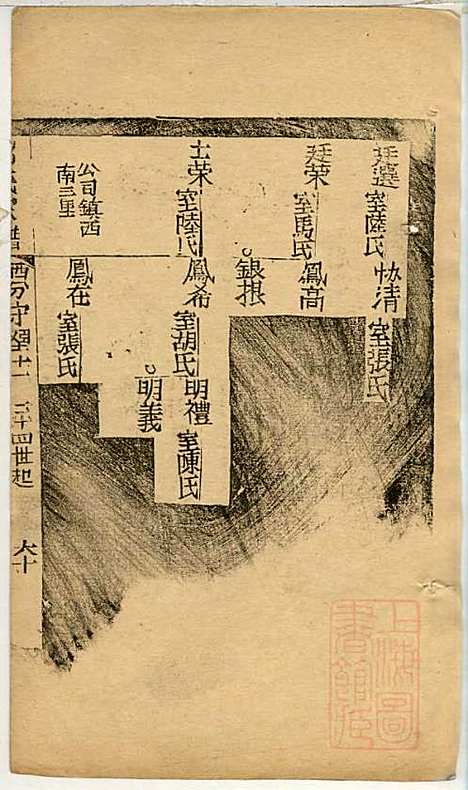 廷選 室陸氏
协清 室張氏
廷榮 室馬氏
鳳高
銀根
士榮 室陸氏
鳳希 室胡氏
明禮 室陳氏
明義
公司鎮西
南三里
鳳在 室張氏
二十四世起 六十
上海圖
書館藏